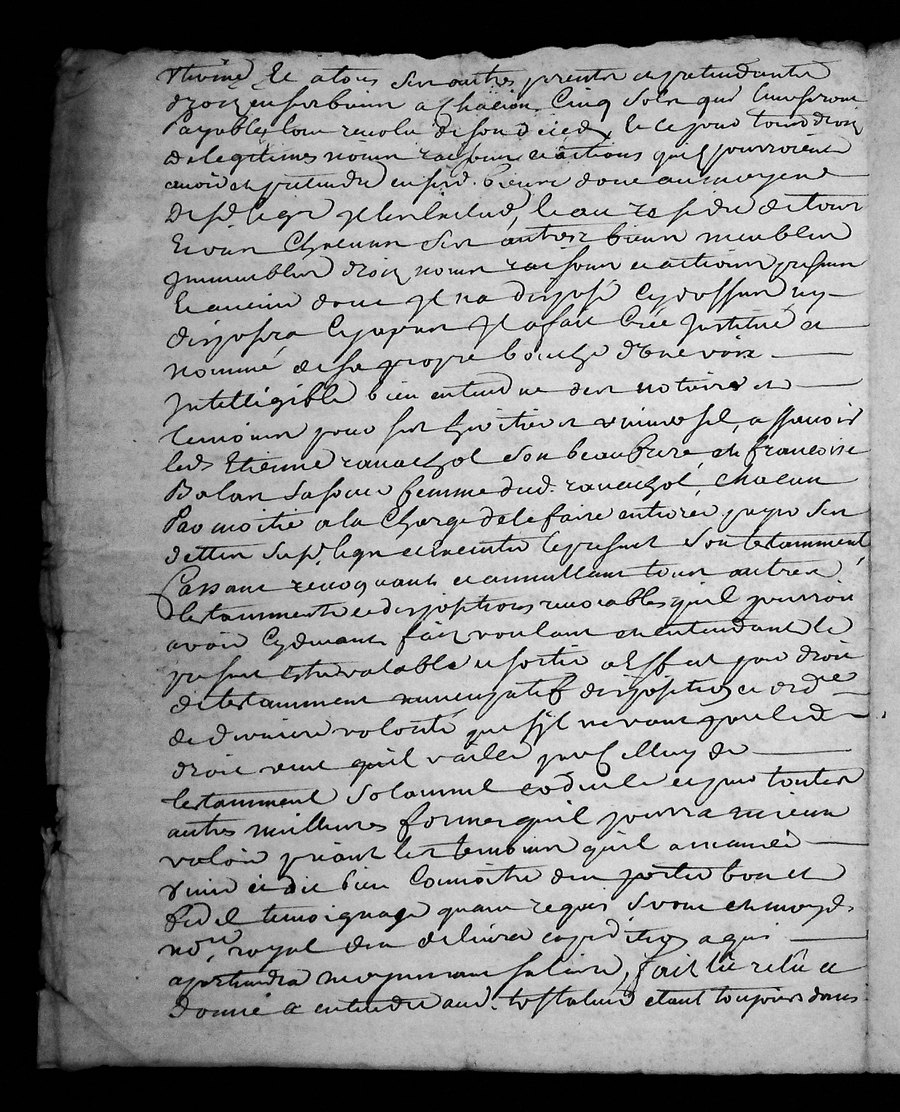 Et a tous ses autres parents et pretendants
droit en ses biens a chacun Cinq Sols qui leur seront
payables lan revolu de son deced Et ce pour tous droits
de legitimes noms raisons et actions quils pourroient
avoir et pretendre en sesd. biens dont au moyend
de sd legs Il les Exclud, Et au residu de tous
Et uns Chacuns ses autres biens meubles
Immeubles droits noms raisons et actions presents
Et avenir dont Il na disposé Cydessus ny
disposera Cyapres Il a fait Créé Institué et
nommé de sa propre bouche dune voix
Intelligible bien entendue des notaire et
temoins pour ses heritiers universel, assavoir
led Etienne ravachol son beaufrere, et francoise
Balan sa soeur femme dud. ravachol, chacun
Par moitié a la Charge de le faire enterer payer ses
dettes sesd legs et Executer le present son testamment
Cassant revoquants et annullant tous autres
testamments et dispositions revocables quil pourroit
avoir Cydevant fait voulant et entendant le
present Estre valable et sortir a Effect par droit
de testamment nuncupatif disposition et ordre
de derniere volonté que sil ne vaut par led
droit veut quil vaille par Celluy de
testamment solannel codicile et par toutes
autres meilleures formes quil pourra mieux
valoir priant les temoins quil a
et dit bien Connoitre den porter bon et
fidel temoignage quand requis seront et moyd.
nore. royal den delivrer expedition a qui
apartiendra moyennant salaire, fait lu relu et
donné a entendre aud. testateur etant toujours dans